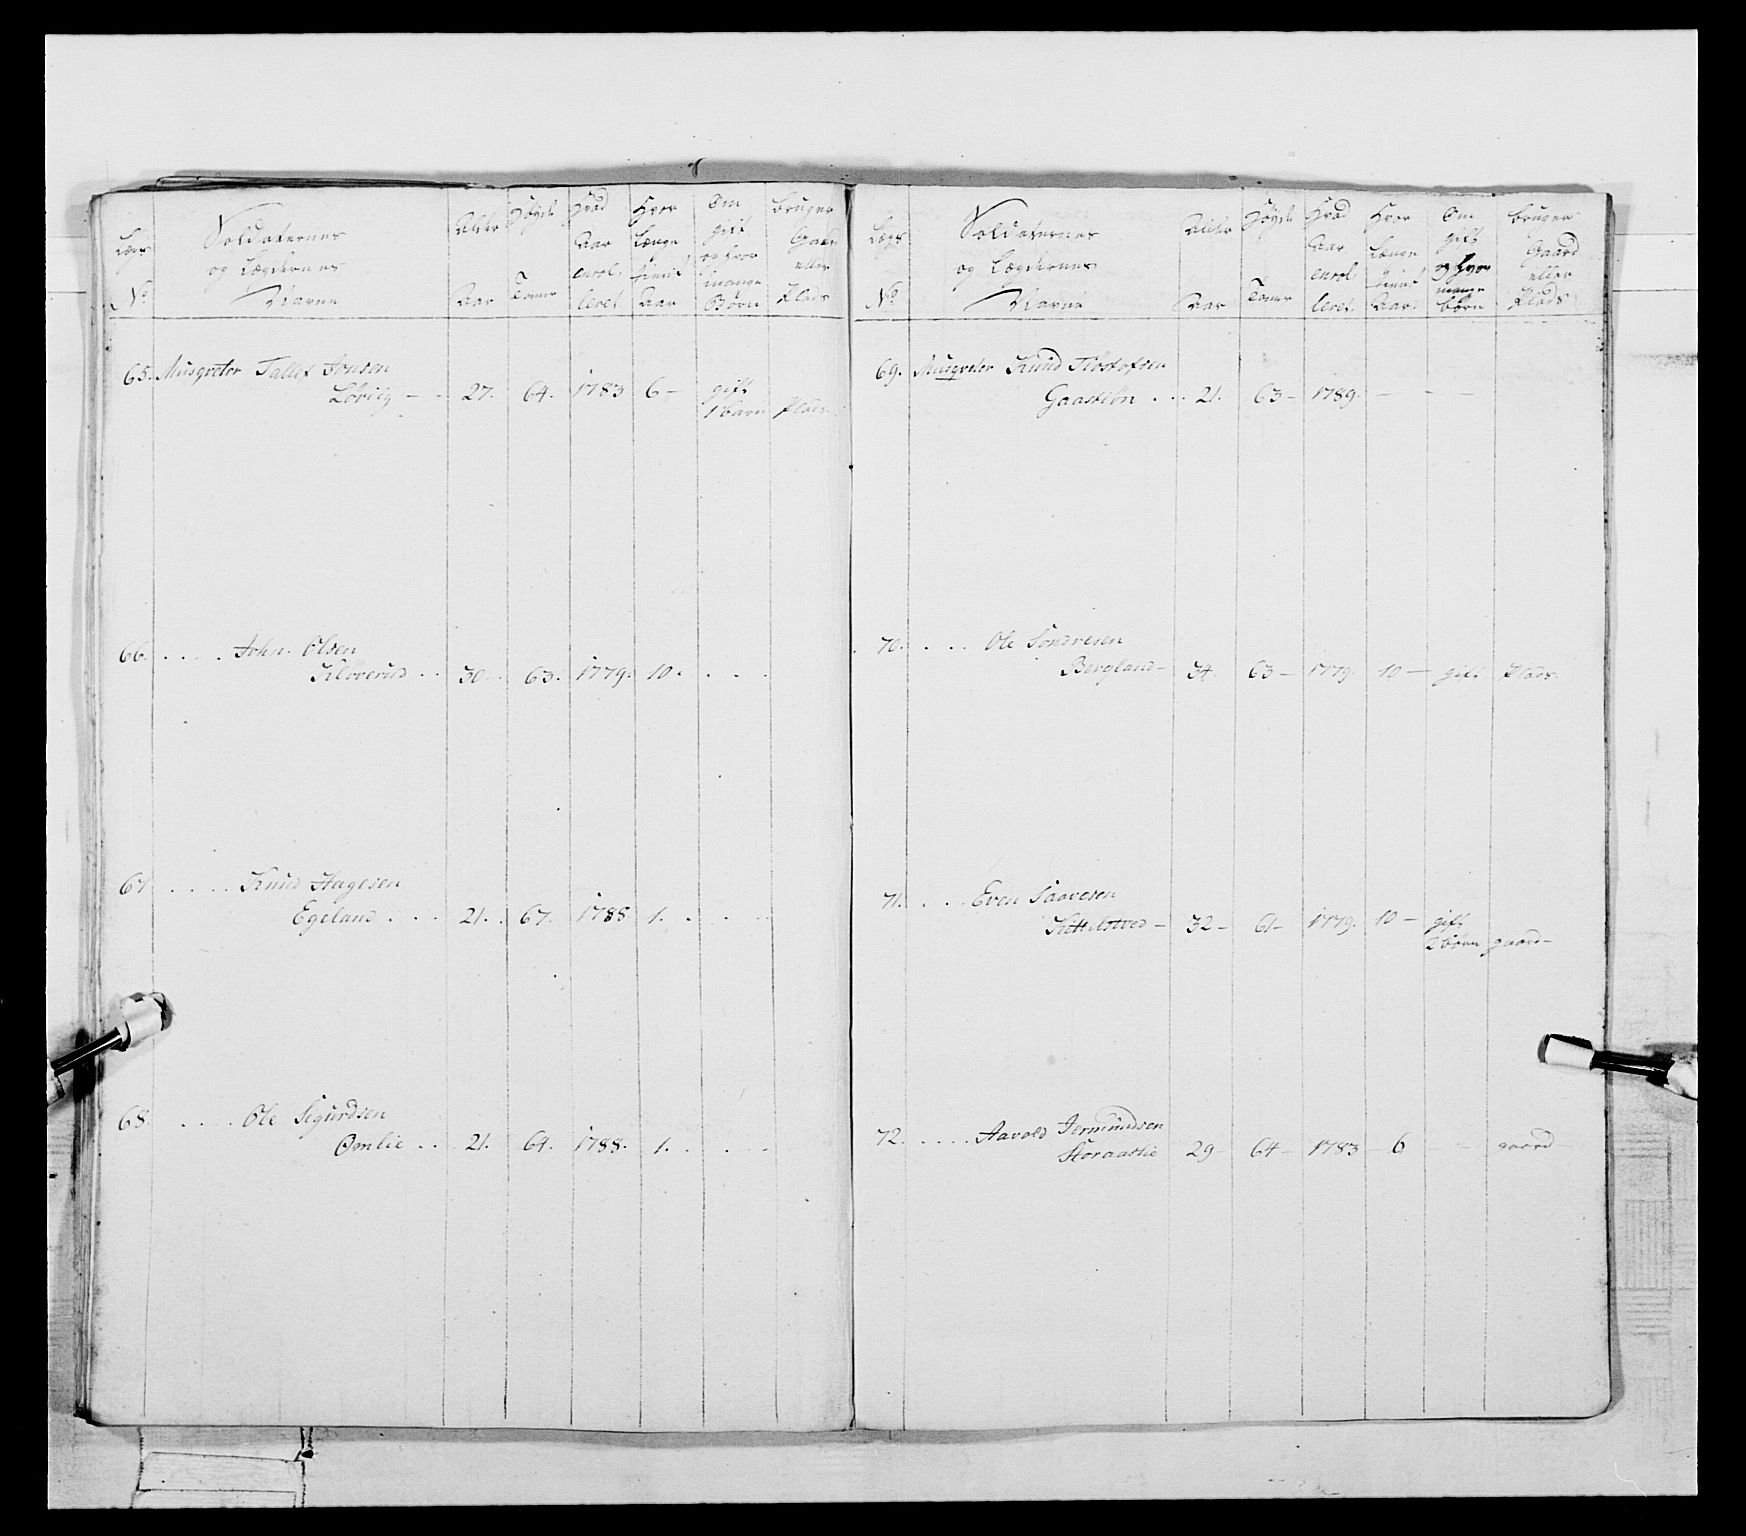 Lægs
No
Soldaternes
og Lægdernes
Navne
Alder
Aar
Høyde
Tomer
Hvad
Aar
enrol-
leret
Hvor
Længe
tient
Aar
Om
gift
og hvor
mange
Børn
bruger
Gaard
eller
Plads
65. Musqveter Tallef Jonsen
Lövlig - - 27. 64. 1783 6 - gift
1 barn Plads.
66. . . . . John Olsen
Klöverud . . 30 . 63. 1779. 10 . . . .
67 . . . . Knud Aagesen
Egeland . . . 21. . 67. 1788 1. . . .
68. . . . . Ole Sigurdsen
Omlie . . 21. 64. 1788. 1. . . .
Lægs
No
Soldaternes
og Lægdernes
Navne
Alder
Aar
Høyde
Tomer
Hvad
Aar
enrol-
leret.
Hvor
Længe
tient
Aar.
Om
gift
og hvor
mange
børn
bruger
Gaard
eller
Plads
69. Musqveter Knud
. . . 21. 63 - 1789. - - -
70. . . . Ole Sondresen
Bergland - 34. 63 - 1779. 10 - gift Plads.
71. . . . Even Saavesen
Kittilstved - 32 - 61 - 1779. 10 - gift
2 börn gaard -
72. . . . . Aavold Jermundsen
Storaaslie 29 - 64 - 1783 - 6 - - gaard